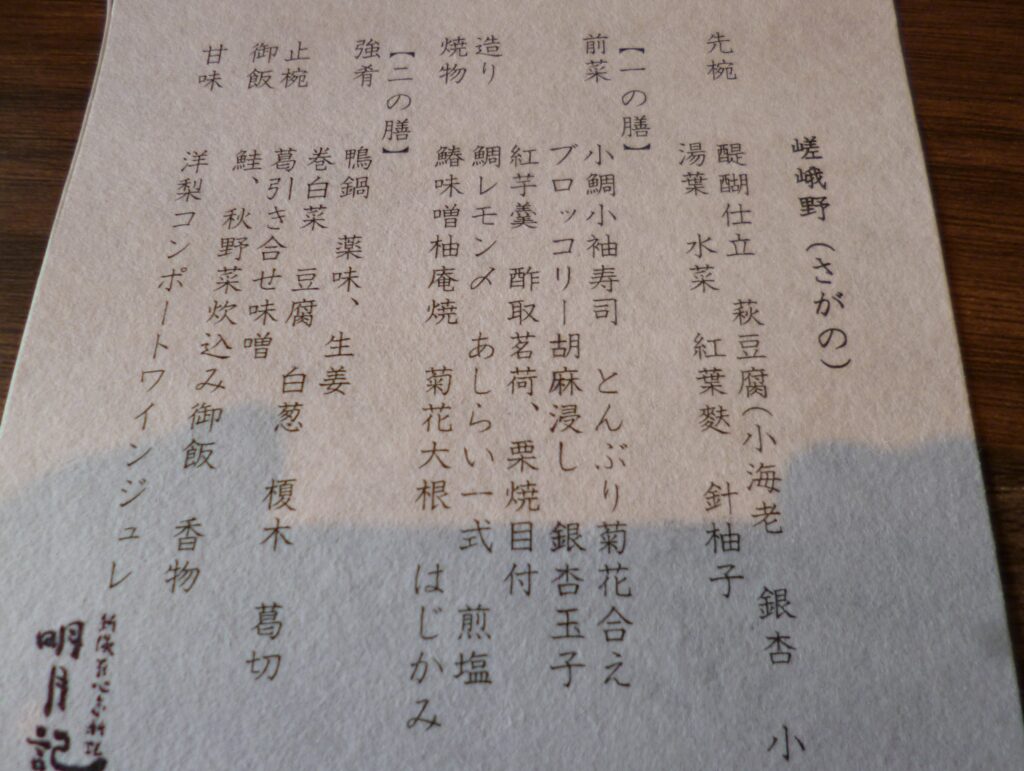 嵯峨野（さがの）
先椀　醍醐仕立　萩豆腐（小海老　銀杏　小
湯葉　水菜　紅葉麩　針柚子
【一の膳】
前菜　小鯛小袖寿司　とんぶり菊花合え
ブロッコリー胡麻浸し　銀杏玉子
紅芋羹　酢取茗荷、栗焼目付
造り　鯛レモン〆　あしらい一式　煎塩
焼物　鰆味噌柚庵焼　菊花大根　はじかみ
【二の膳】
強肴　鴨鍋　薬味、生姜
巻白菜　豆腐　白葱　榎木　葛切
止椀　葛引き合せ味噌
御飯　鮭、秋野菜炊込み御飯　香物
甘味　洋梨コンポートワインジュレ
明月記